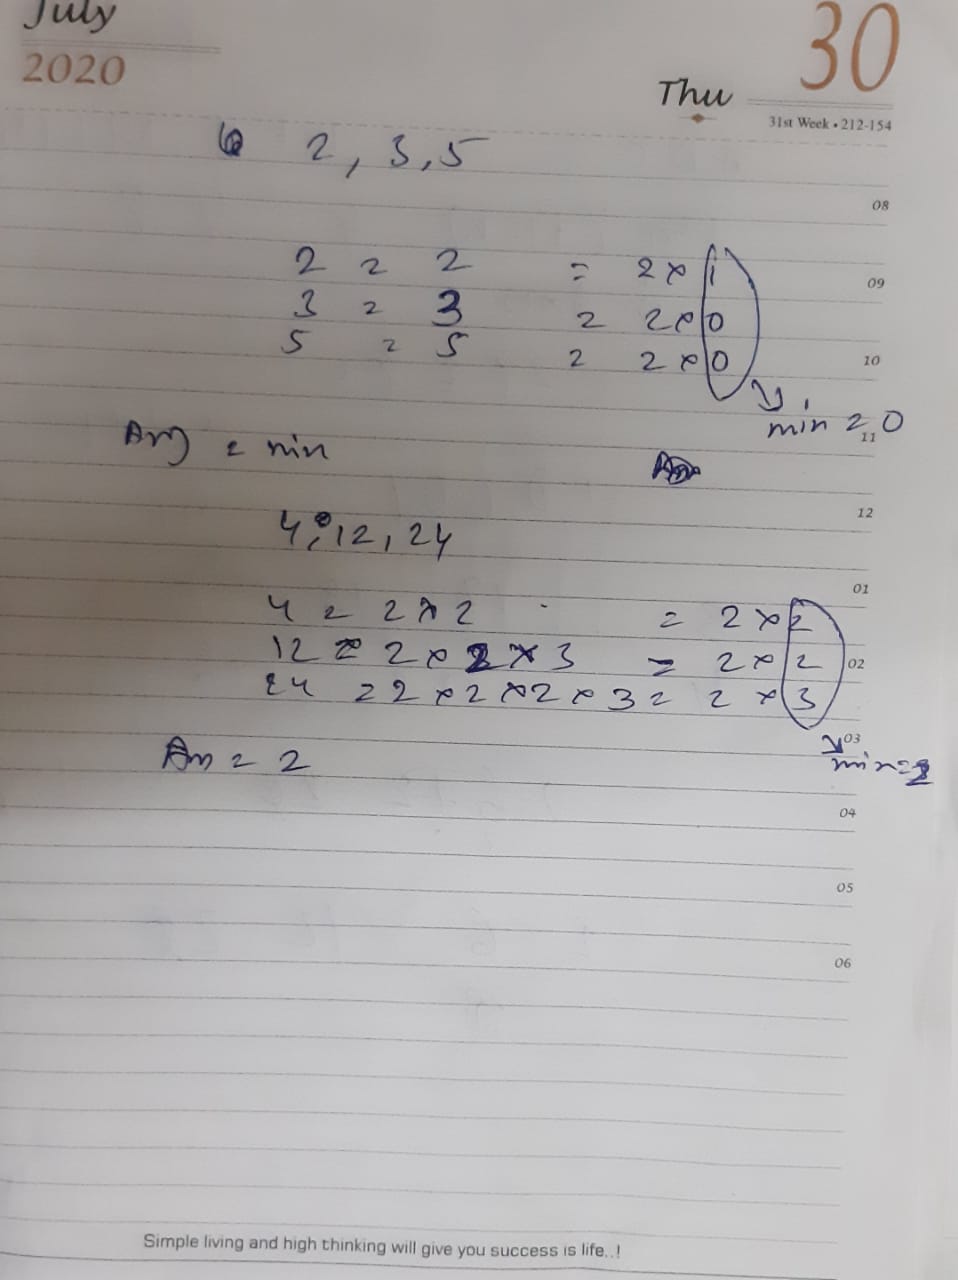 July
2020
30
Thu
31st Week • 212-154
2, 3, 5
08
2 = 2 = 2 × 1
09
3 = 3 = 2 × 0
5 = 5 = 2 × 0
10
min = 0
11
Ans = min
12
4, 12, 24
01
4 = 2 × 2 = 2 × 2
12 = 2 × 2 × 3 = 2 × 2
02
24 = 2 × 2 × 2 × 3 = 2 × 3
03
Ans = 2
min = 2
04
05
06
Simple living and high thinking will give you success is life..!